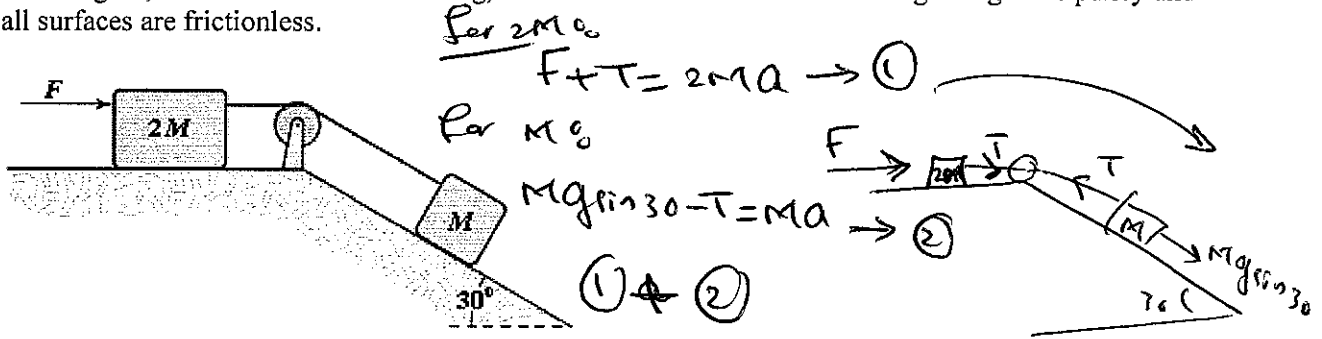 all surfaces are frictionless.
for 2M :
F+T=2Ma → ①
for M :
Mgsin30-T=Ma → ②
① + ②
F
2M
M
30°
F
2M
T
T
M
Mgsin30
30